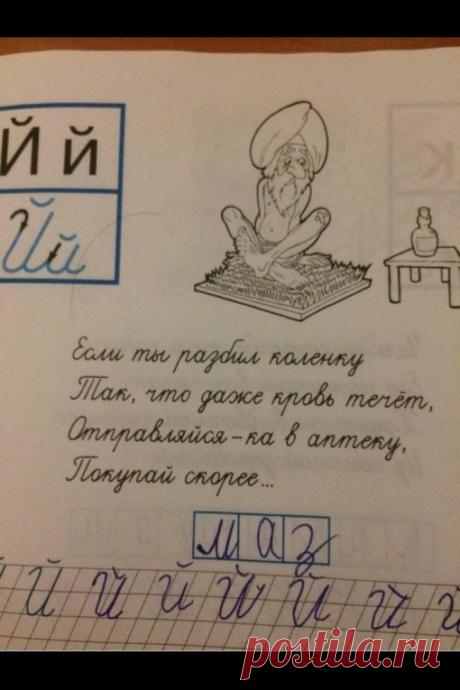 Й й
Й й
Если ты разбил коленку
Так, что даже кровь течёт,
Отправляйся-ка в аптеку,
Покупай скорее...
маз
й й й й й й й
postila.ru